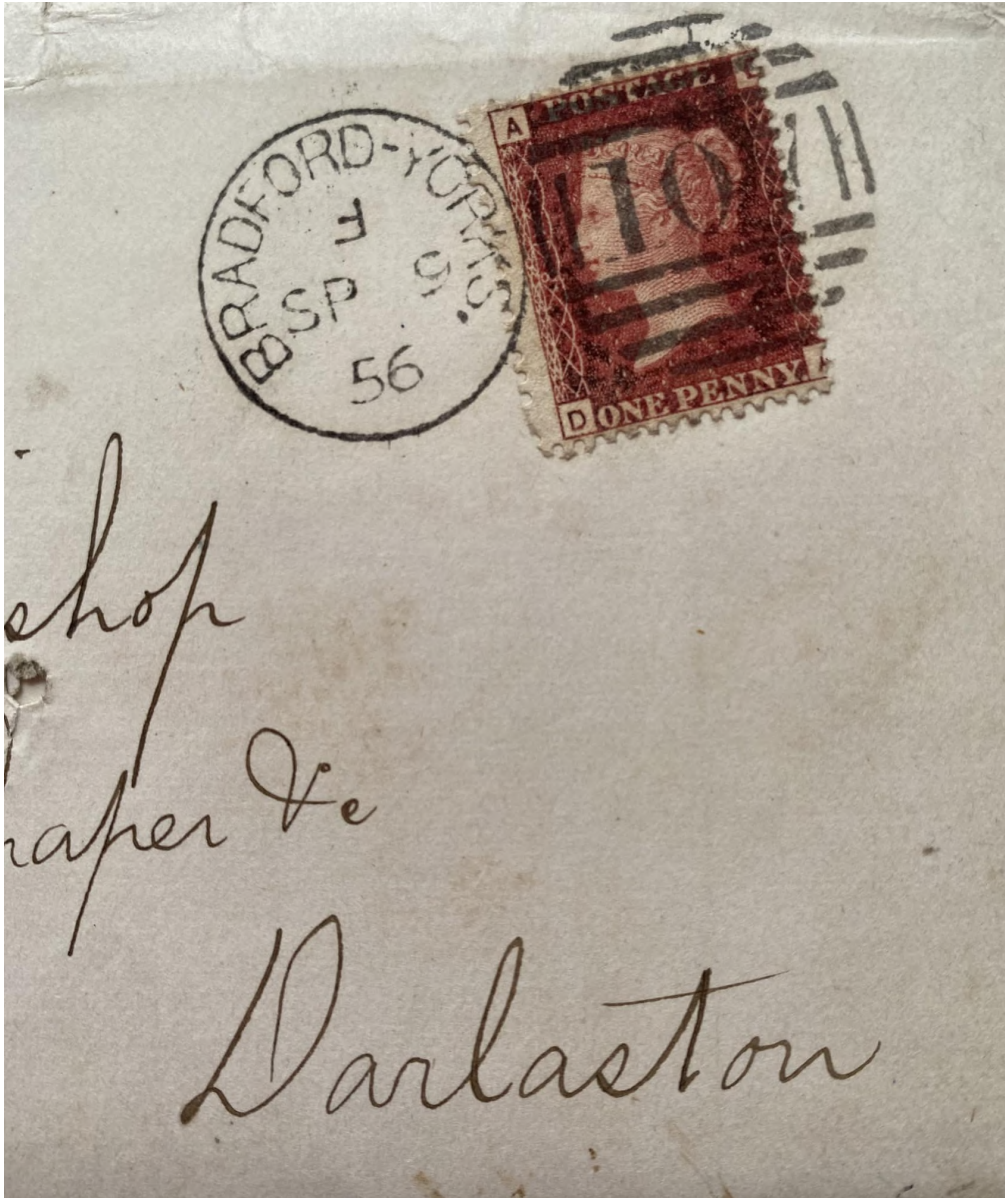 BRADFORD-YORKS.
F
SP 9
56
A
POSTAGE
107
D
ONE PENNY
shop
raper &c
Darlaston